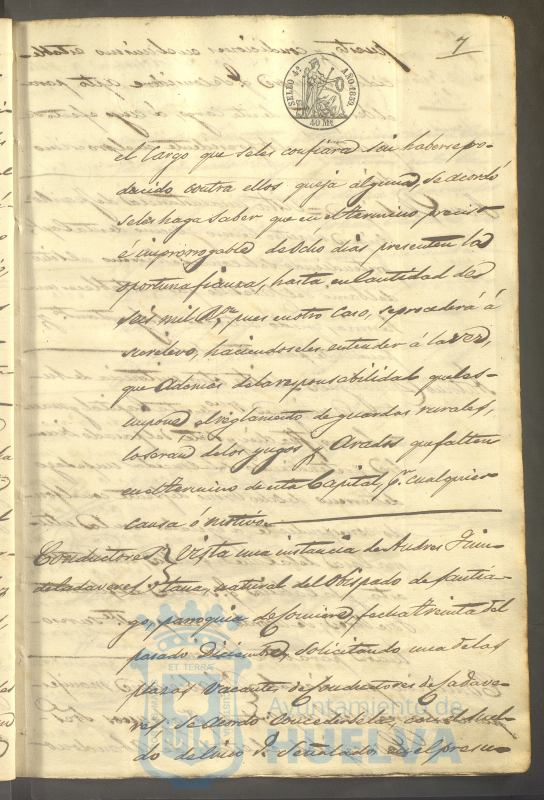 7
SELLO 4º AÑO 1859
40 Ms
el cargo que seles confiara sin haberse pro-
ducido contra ellos queja alguna, se acordó
seles haga saber que en el termino preciso
é improrrogable de Ocho dias presenten la
oportuna fianza, hasta en cantidad de
seis mil Rs. pues en otro caso, se procederá á
su relevo, haciendoseles entender á la vez,
que Ademas de la responsabilidad que les
impone el reglamento de guardas rurales,
lo seran de los yugos y Arados que falten
en el termino de esta Capital, pr. cualquier
causa ó motivo.
Conductores Vista una instancia de Andres
de Cadaveres natural del Obispado de Santia-
go, parroquia de fecha treinta del
pasado Diciembre, solicitando una de las
plazas vacantes de Conductores de Cadave-
res se acordo concedersela, con el suel-
do de señalado en el presu-
ET TERRAE
Ayuntamiento de
HUELVA